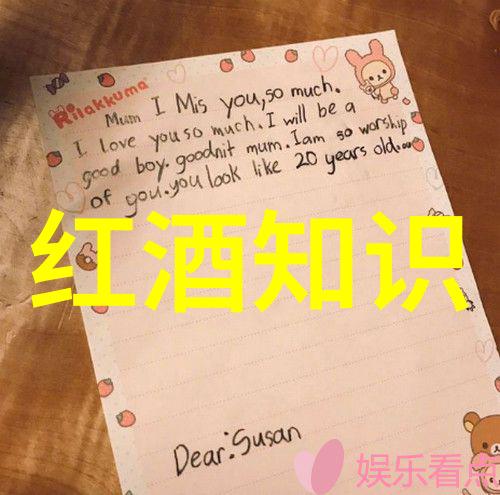 Rilakkuma
Mum I Mis you,so much.
I love you so much. I will be a
good boy. goodnit mum. I am so worship
of you. you look like 20 years old...
红酒知识
Dear: Susan
娱乐看点